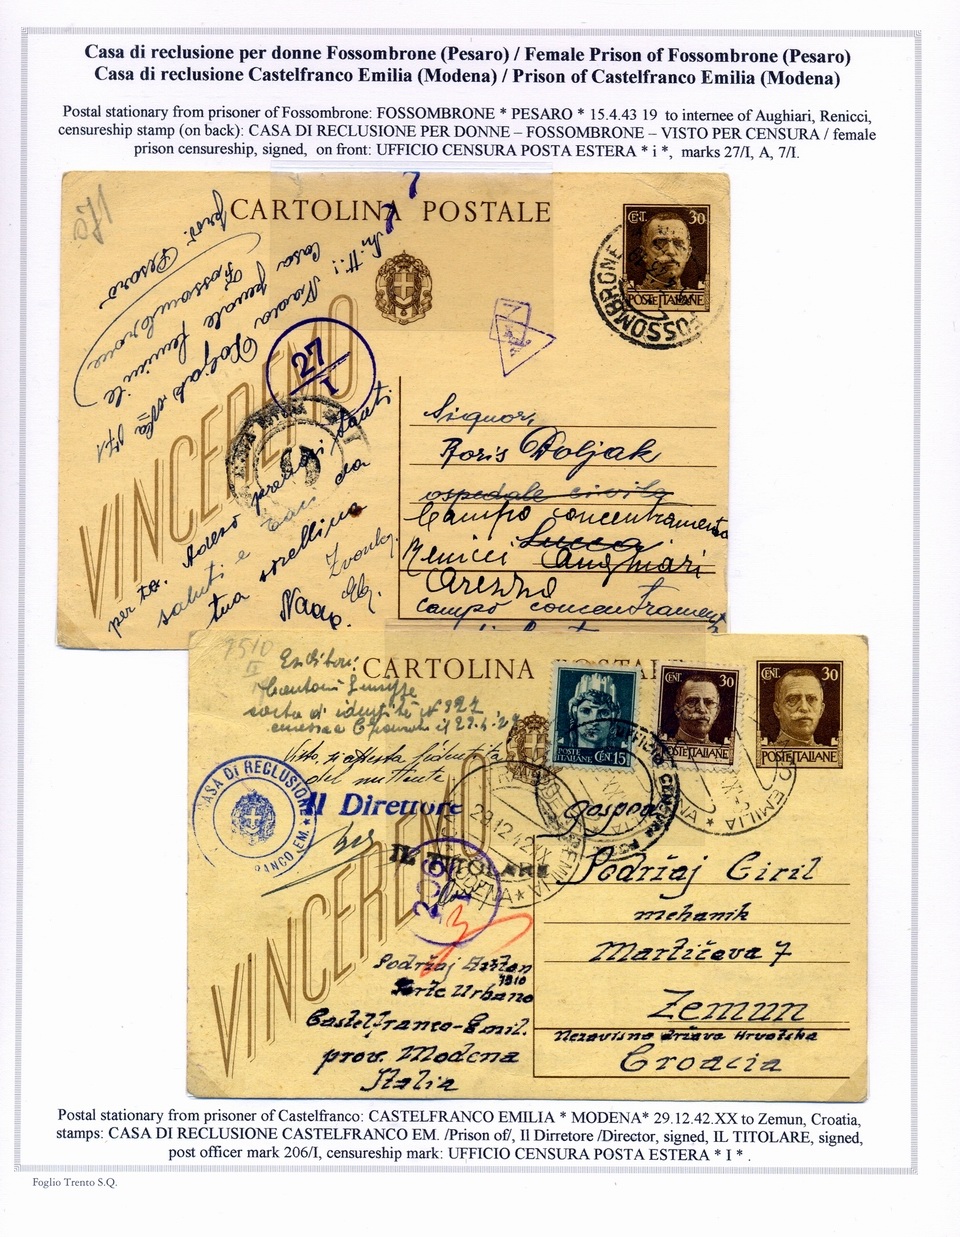 Casa di reclusione per donne Fossombrone (Pesaro) / Female Prison of Fossombrone (Pesaro)
Casa di reclusione Castelfranco Emilia (Modena) / Prison of Castelfranco Emilia (Modena)
Postal stationary from prisoner of Fossombrone: FOSSOMBRONE * PESARO * 15.4.43 19 to internee of Aughiari, Renicci,
censureship stamp (on back): CASA DI RECLUSIONE PER DONNE – FOSSOMBRONE – VISTO PER CENSURA / female
prison censureship, signed, on front: UFFICIO CENSURA POSTA ESTERA * i *, marks 27/I, A, 7/I.
CARTOLINA POSTALE
CENT. 30
POSTE ITALIANE
FOSSOMBRONE
prov. Pesaro
Fossombrone
Casa penale feminile
27
I
VINCEREMO
Signor,
Boris Doljak
ospedale civile
Campo concentramento
Lucca
Renicci Anghiari
Arezzo
campo concentrament
saluti e
tua sorellina
Nada
Zvonko
9510
II
CARTOLINA POSTALE
POSTE ITALIANE CENT. 15
CENT. 30
POSTE ITALIANE
CENT. 30
POSTE ITALIANE
del mittente
CASA DI RECLUSIONE
FRANCO EM.
Il Direttore
IL TITOLARE
29.12.42.XX
206
I
VINCEREMO
Gospod
Podržaj Ciril
mehanik
Martičeva 7
Zemun
Nezavisna država Hrvatska
Croacia
Podržaj
7510
Forte Urbano
Castelfranco-Emil.
prov. Modena
Italia
Postal stationary from prisoner of Castelfranco: CASTELFRANCO EMILIA * MODENA* 29.12.42.XX to Zemun, Croatia,
stamps: CASA DI RECLUSIONE CASTELFRANCO EM. /Prison of/, Il Dirretore /Director, signed, IL TITOLARE, signed,
post officer mark 206/I, censureship mark: UFFICIO CENSURA POSTA ESTERA * I * .
Foglio Trento S.Q.